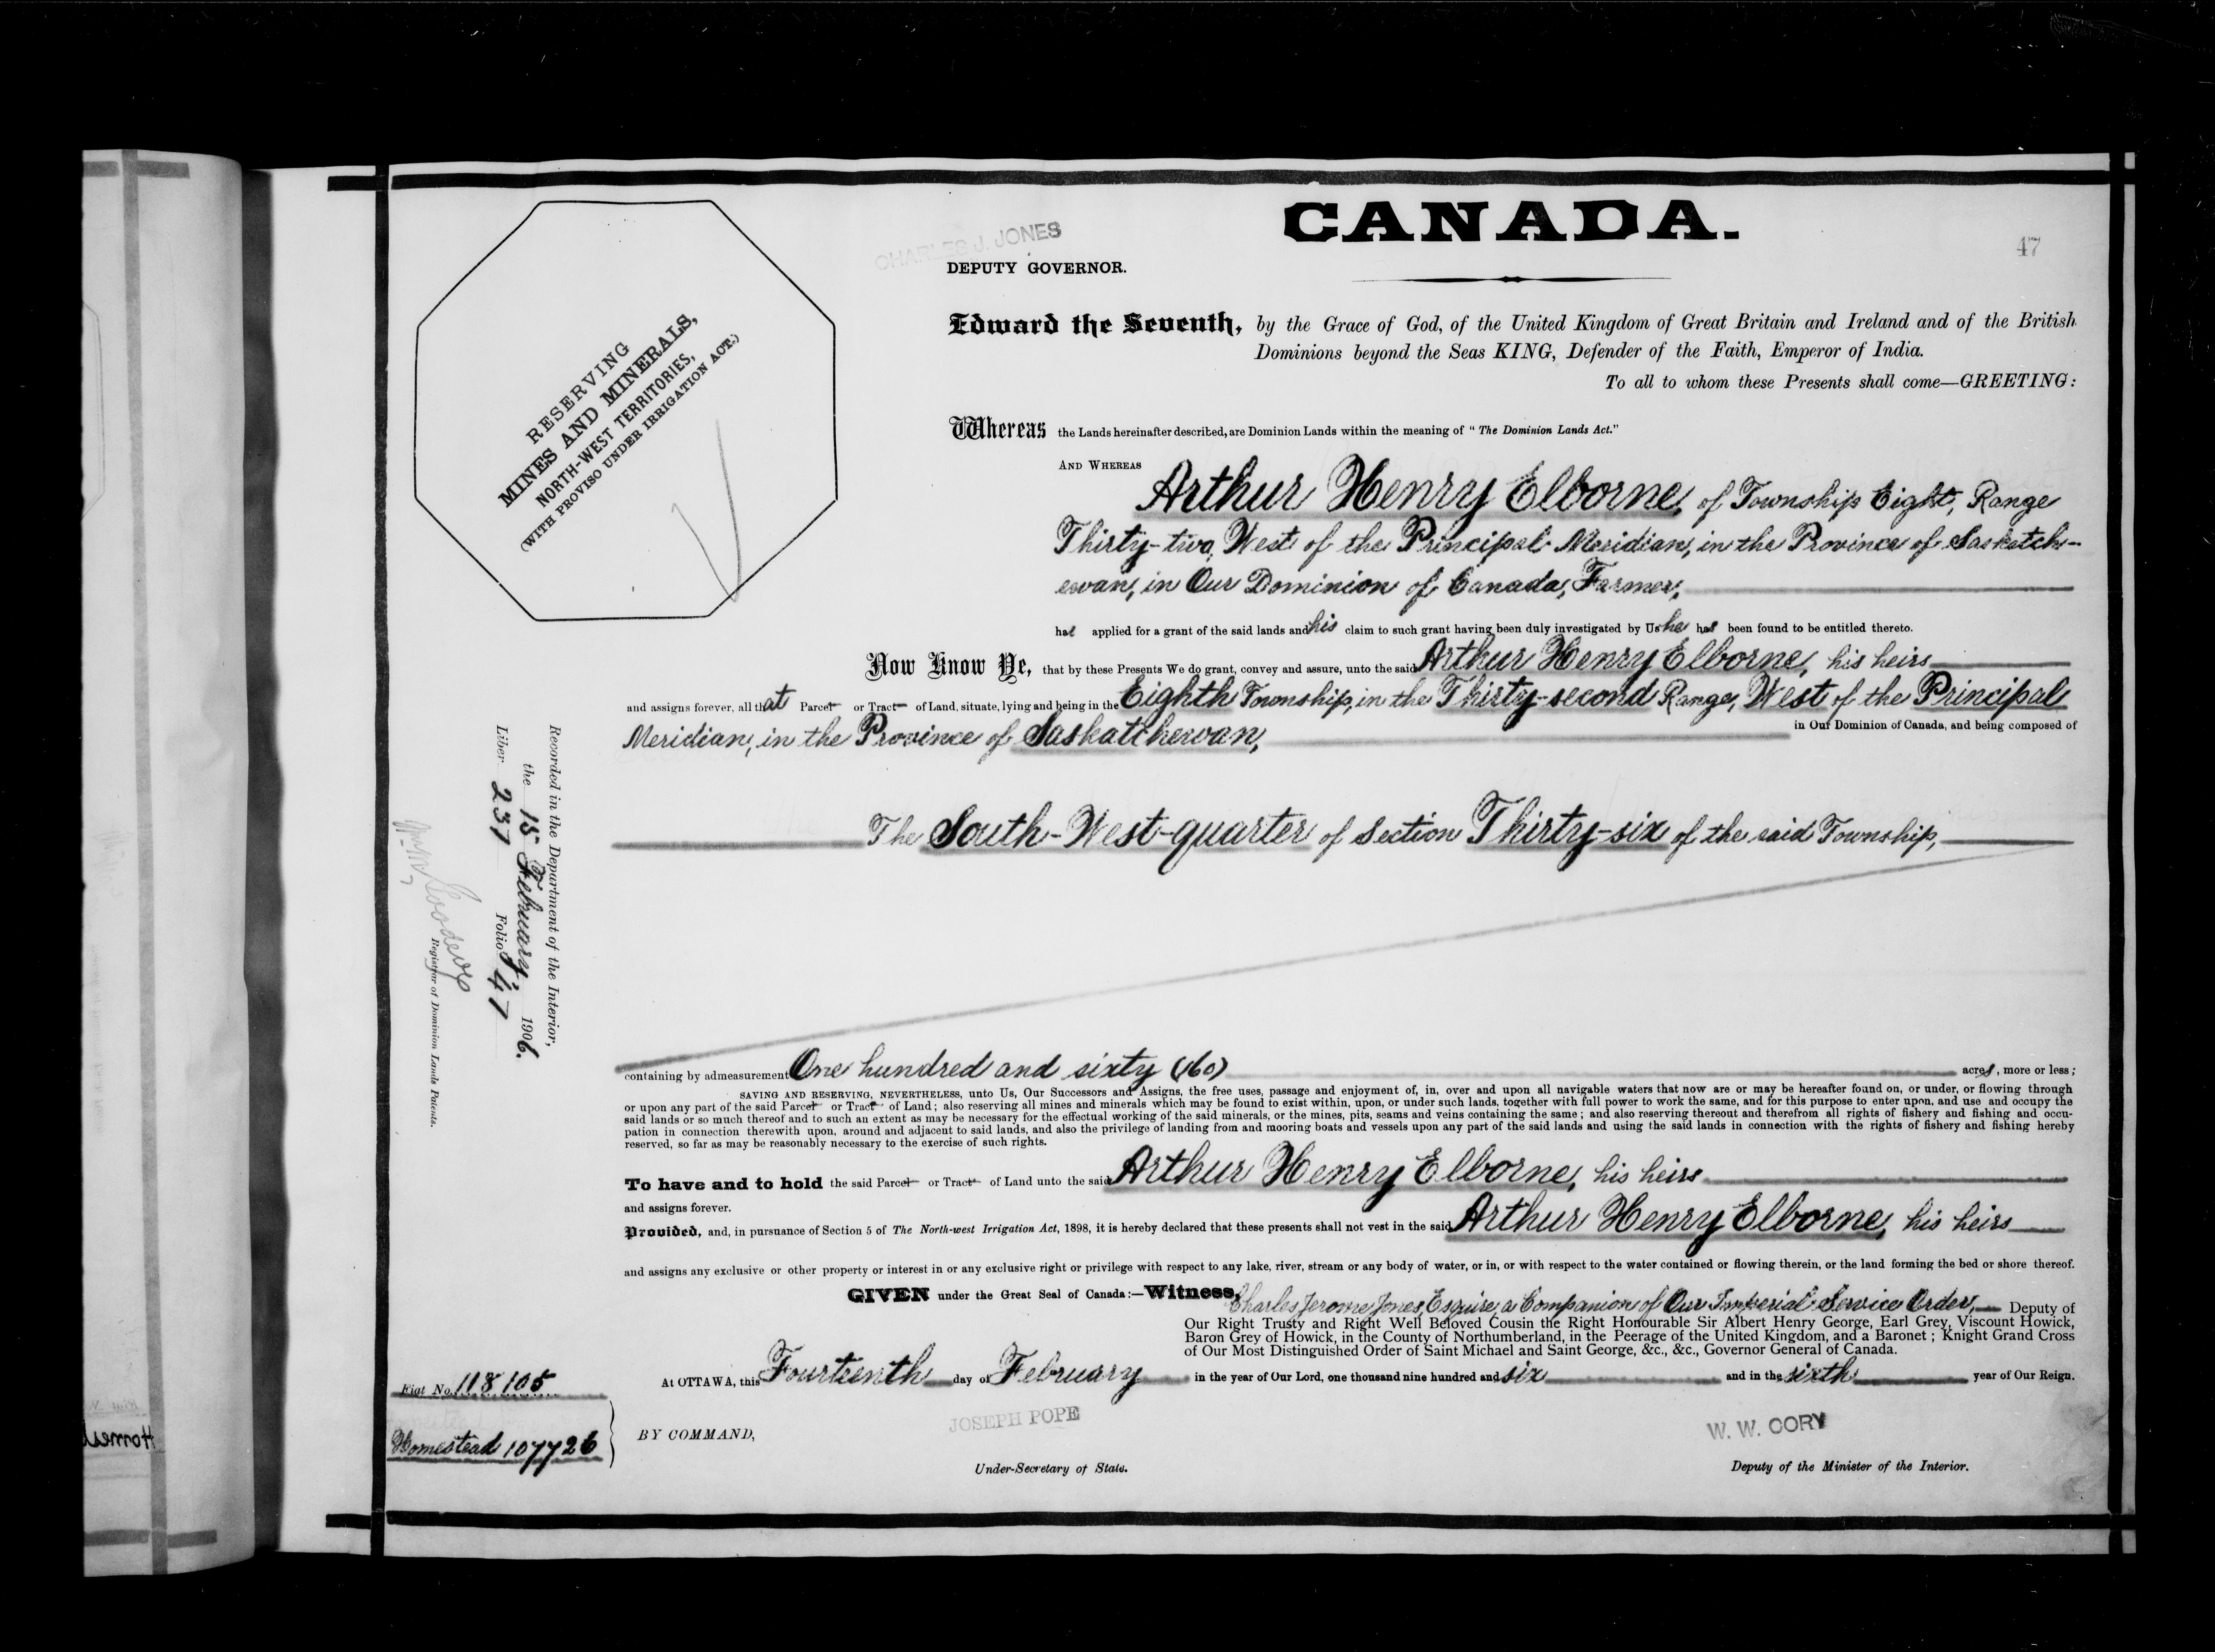 CANADA.
47
CHARLES J. JONES
DEPUTY GOVERNOR.
RESERVING
MINES AND MINERALS,
NORTH-WEST TERRITORIES,
(WITH PROVISO UNDER IRRIGATION ACT.)
Edward the Seventh, by the Grace of God, of the United Kingdom of Great Britain and Ireland and of the British
Dominions beyond the Seas KING, Defender of the Faith, Emperor of India.
To all to whom these Presents shall come—GREETING:
Whereas the Lands hereinafter described, are Dominion Lands within the meaning of "The Dominion Lands Act."
AND WHEREAS
Arthur Henry Elborne, of Township Eight, Range
Thirty-two, West of the Principal Meridian, in the Province of Saskatch-
ewan, in Our Dominion of Canada, Farmer,
has applied for a grant of the said lands and his claim to such grant having been duly investigated by Us he has been found to be entitled thereto.
Now Know Ye, that by these Presents We do grant, convey and assure, unto the said Arthur Henry Elborne, his heirs
and assigns forever, all that Parcel or Tract of Land, situate, lying and being in the Eighth Township, in the Thirty-second Range, West of the Principal
Meridian, in the Province of Saskatchewan, in Our Dominion of Canada, and being composed of
The South-West-quarter of Section Thirty-six of the said Township,
containing by admeasurement One hundred and sixty (160) acres, more or less;
SAVING AND RESERVING, NEVERTHELESS, unto Us, Our Successors and Assigns, the free uses, passage and enjoyment of, in, over and upon all navigable waters that now are or may be hereafter found on, or under, or flowing through
or upon any part of the said Parcel or Tract of Land; also reserving all mines and minerals which may be found to exist within, upon, or under such lands, together with full power to work the same, and for this purpose to enter upon, and use and occupy the
said lands or so much thereof and to such an extent as may be necessary for the effectual working of the said minerals, or the mines, pits, seams and veins containing the same; and also reserving thereout and therefrom all rights of fishery and fishing and occu-
pation in connection therewith upon, around and adjacent to said lands, and also the privilege of landing from and mooring boats and vessels upon any part of the said lands and using the said lands in connection with the rights of fishery and fishing hereby
reserved, so far as may be reasonably necessary to the exercise of such rights.
To have and to hold the said Parcel or Tract of Land unto the said Arthur Henry Elborne, his heirs
and assigns forever.
Provided, and, in pursuance of Section 5 of The North-west Irrigation Act, 1898, it is hereby declared that these presents shall not vest in the said Arthur Henry Elborne, his heirs
and assigns any exclusive or other property or interest in or any exclusive right or privilege with respect to any lake, river, stream or any body of water, or in, or with respect to the water contained or flowing therein, or the land forming the bed or shore thereof.
GIVEN under the Great Seal of Canada:—Witness, Charles Jerome Jones, Esquire, a Companion of Our Imperial Service Order, Deputy of
Our Right Trusty and Right Well Beloved Cousin the Right Honourable Sir Albert Henry George, Earl Grey, Viscount Howick,
Baron Grey of Howick, in the County of Northumberland, in the Peerage of the United Kingdom, and a Baronet; Knight Grand Cross
of Our Most Distinguished Order of Saint Michael and Saint George, &c., &c., Governor General of Canada.
At OTTAWA, this Fourteenth day of February in the year of Our Lord, one thousand nine hundred and six and in the sixth year of Our Reign.
BY COMMAND,
JOSEPH POPE
Under-Secretary of State.
W. W. CORY
Deputy of the Minister of the Interior.
Recorded in the Department of the Interior,
the 15 February, 1906.
Liber 237 Folio 47
Register of Dominion Lands Patents.
Fiat No. 118105
Homestead 107726